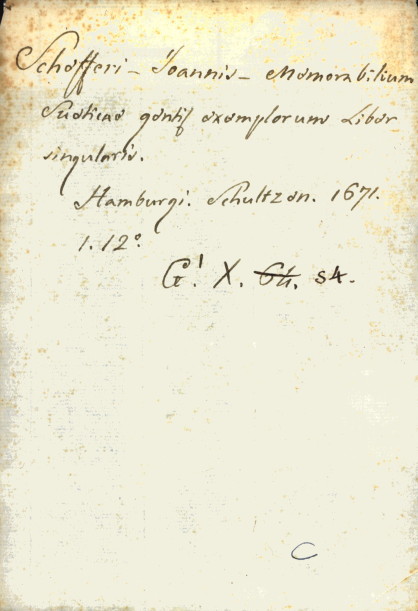 Schefferi - Joannis - Memorabilium
Sueticae gentis exemplorum Liber
singularis.
Hamburgi. Schultzen. 1671.
1. 12°
G! X. 64. 54.
C